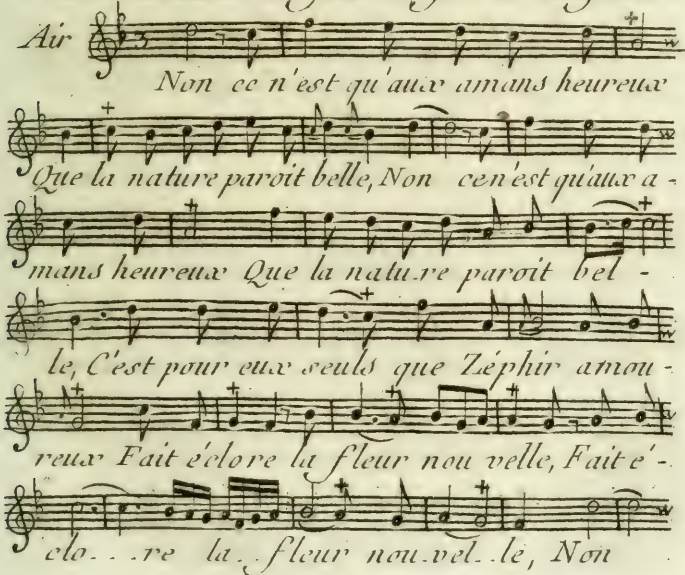 Air
3
Non ce n'est qu'aux amans heureux
Que la nature paroit belle, Non ce n'est qu'aux a-
mans heureux Que la natu.re paroit bel -
le, C'est pour eux seuls que Zéphir amou-
reux Fait éclore la fleur nou velle, Fait é-
clo...re la..fleur nou.vel..le, Non